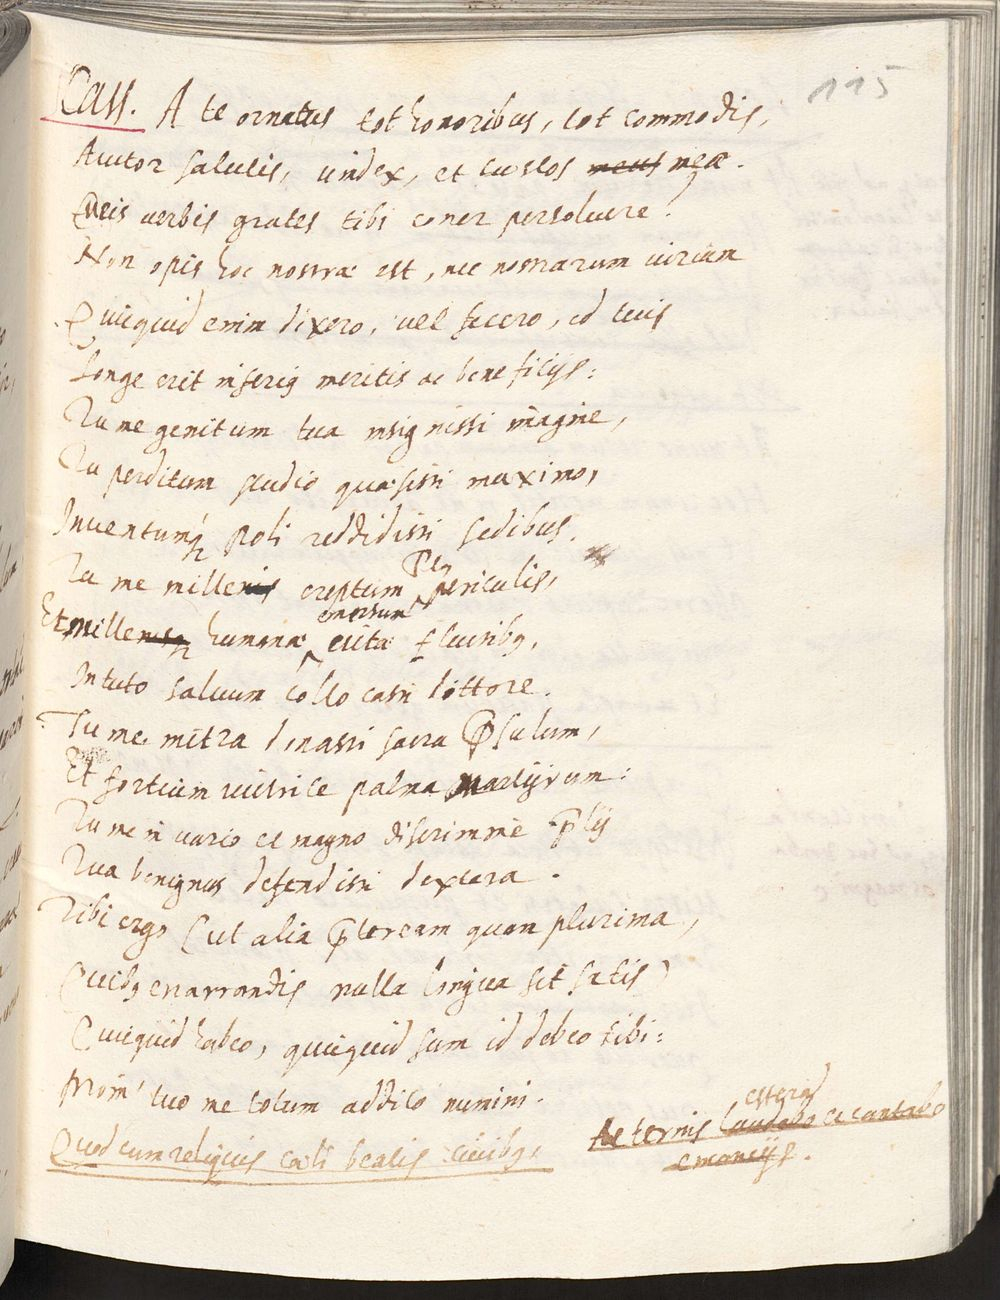 115
Cass. A te ornatus tot honoribus, tot commodis,
Autor salutis, vindex, et custos meus meae.
Queis verbis grates tibi coner persoluere?
Non opis hoc nostrae est, nec nostrarum virium
Quicquid enim dixero, vel fecero, id tuis
Longe erit inferiq meritis ac beneficijs:
Tu me genitum tua insignisti imagine,
Tu perditum studio quaesisti maximo,
Inventumq Poli reddidisti sedibus.
Tu me millenis ereptum periculis,
Et millenisq humanae emersum vitae fluctibq,
In tuto saluum collocasti littore.
Tu me mitra donasti sacra Psulum,
Et fortium victrice palma Martyrum:
Tu me in vario et magno discrimine Plij
Tua benignus defendisti dextera.
Tibi ergo (ut alia Pteream quam plurima,
Quibq enarrandis nulla lingua sit satis)
Quicquid habeo, quicquid sum id debeo tibi:
tuo me totum addico numini.
Quod cum reliquis coeli beatis civibq,
Aeternis laudabo et cantabo